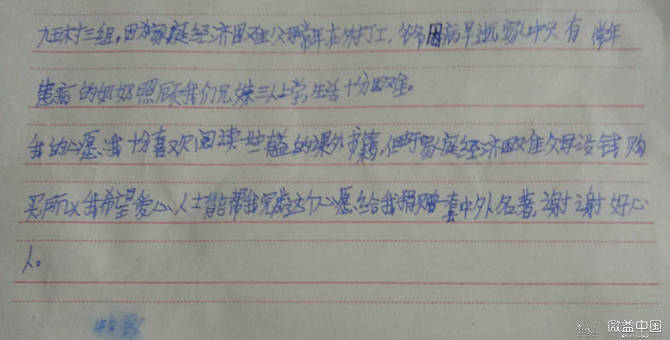 九五村三组,因为家庭经济困难父母常年在外打工,爷爷因病早逝家中只有常年
患病的奶奶照顾我们兄妹三人上学,生活十分困难。
我的心愿:我十分喜欢阅读一些有益的课外书籍,但由于家庭经济困难父母没钱购
买所以我希望爱心人士能帮我完成这个心愿给我捐赠一套中外名著,谢谢好心
人。
微益中国